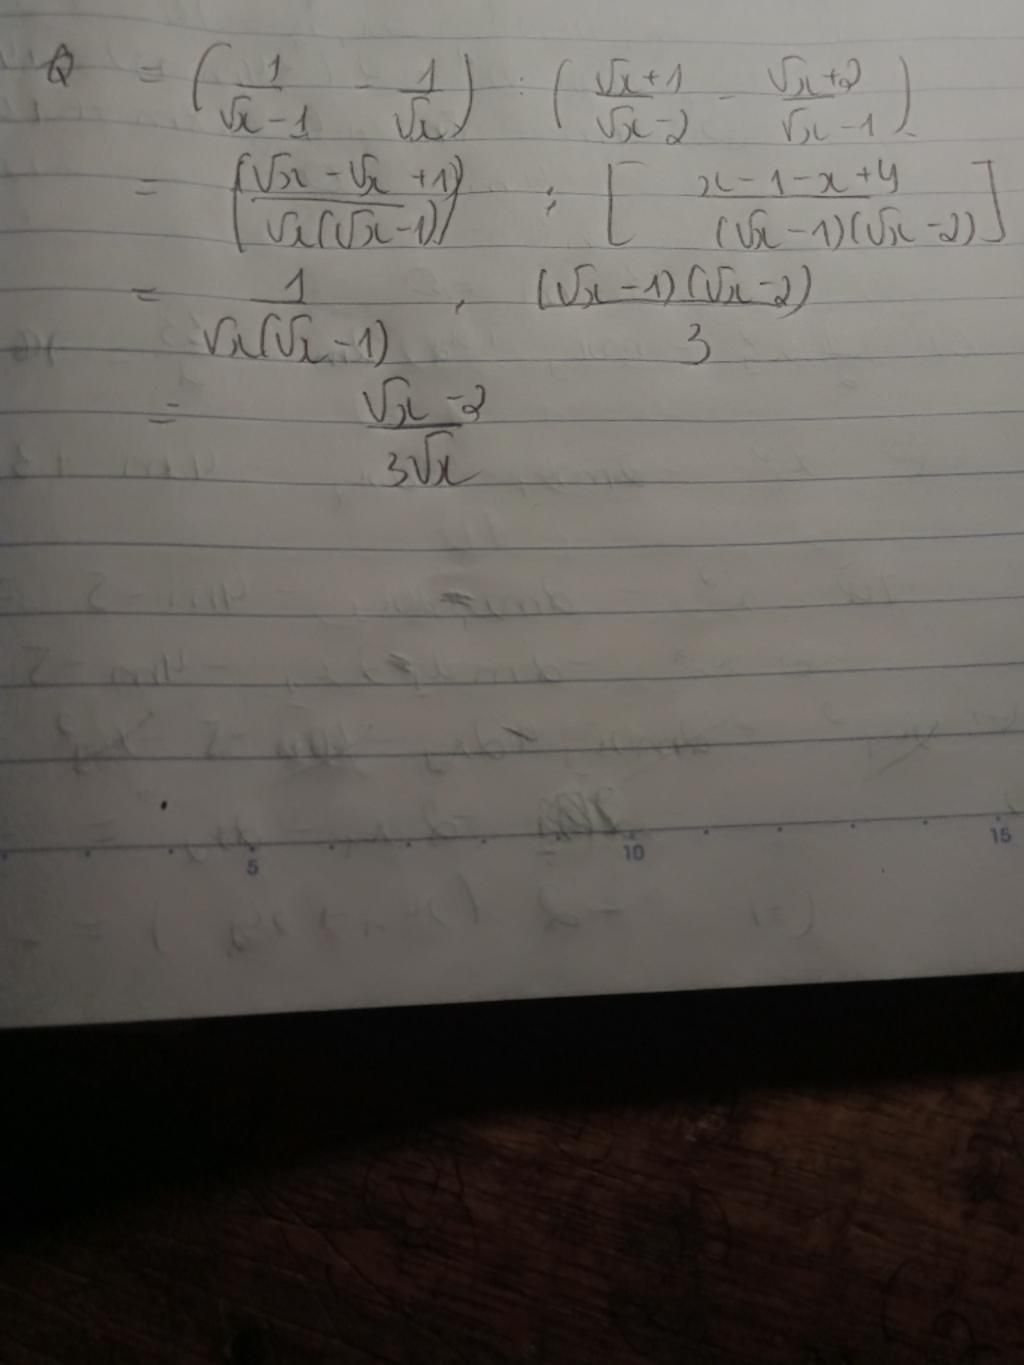 Q = (1/(√x-1) - 1/√x) : ((√x+1)/(√x-2) - (√x+2)/(√x-1))
= ((√x-√x+1)/(√x(√x-1))) : [(x-1-x+4)/((√x-1)(√x-2))]
= 1/(√x(√x-1)) . ((√x-1)(√x-2))/3
= (√x-2)/(3√x)
5 10 15